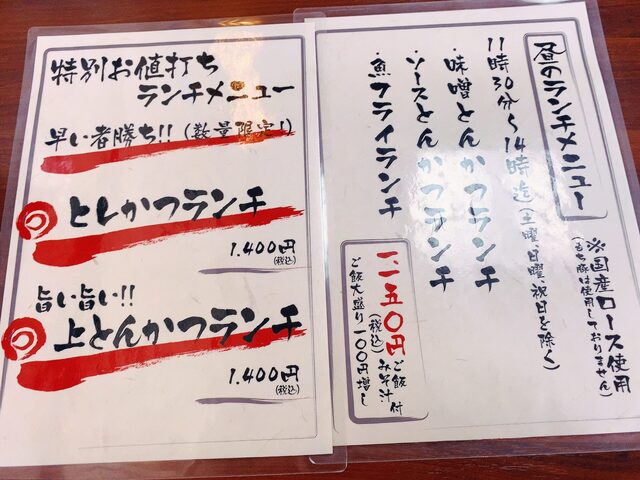 昼のランチメニュー
11時30分~14時迄(土曜、日曜、祝日を除く)
・味噌とんかつランチ
・ソースとんかつランチ
・魚フライランチ
※国産ロース使用
(もち豚は使用しておりません)
一二五〇円
(税込)
ご飯付
みそ汁
ご飯大盛り一〇〇円増し
特別お値打ち
ランチメニュー
早い者勝ち!!(数量限定!)
としかつランチ
1.400円
(税込)
旨い旨い!!
上とんかつランチ
1.400円
(税込)